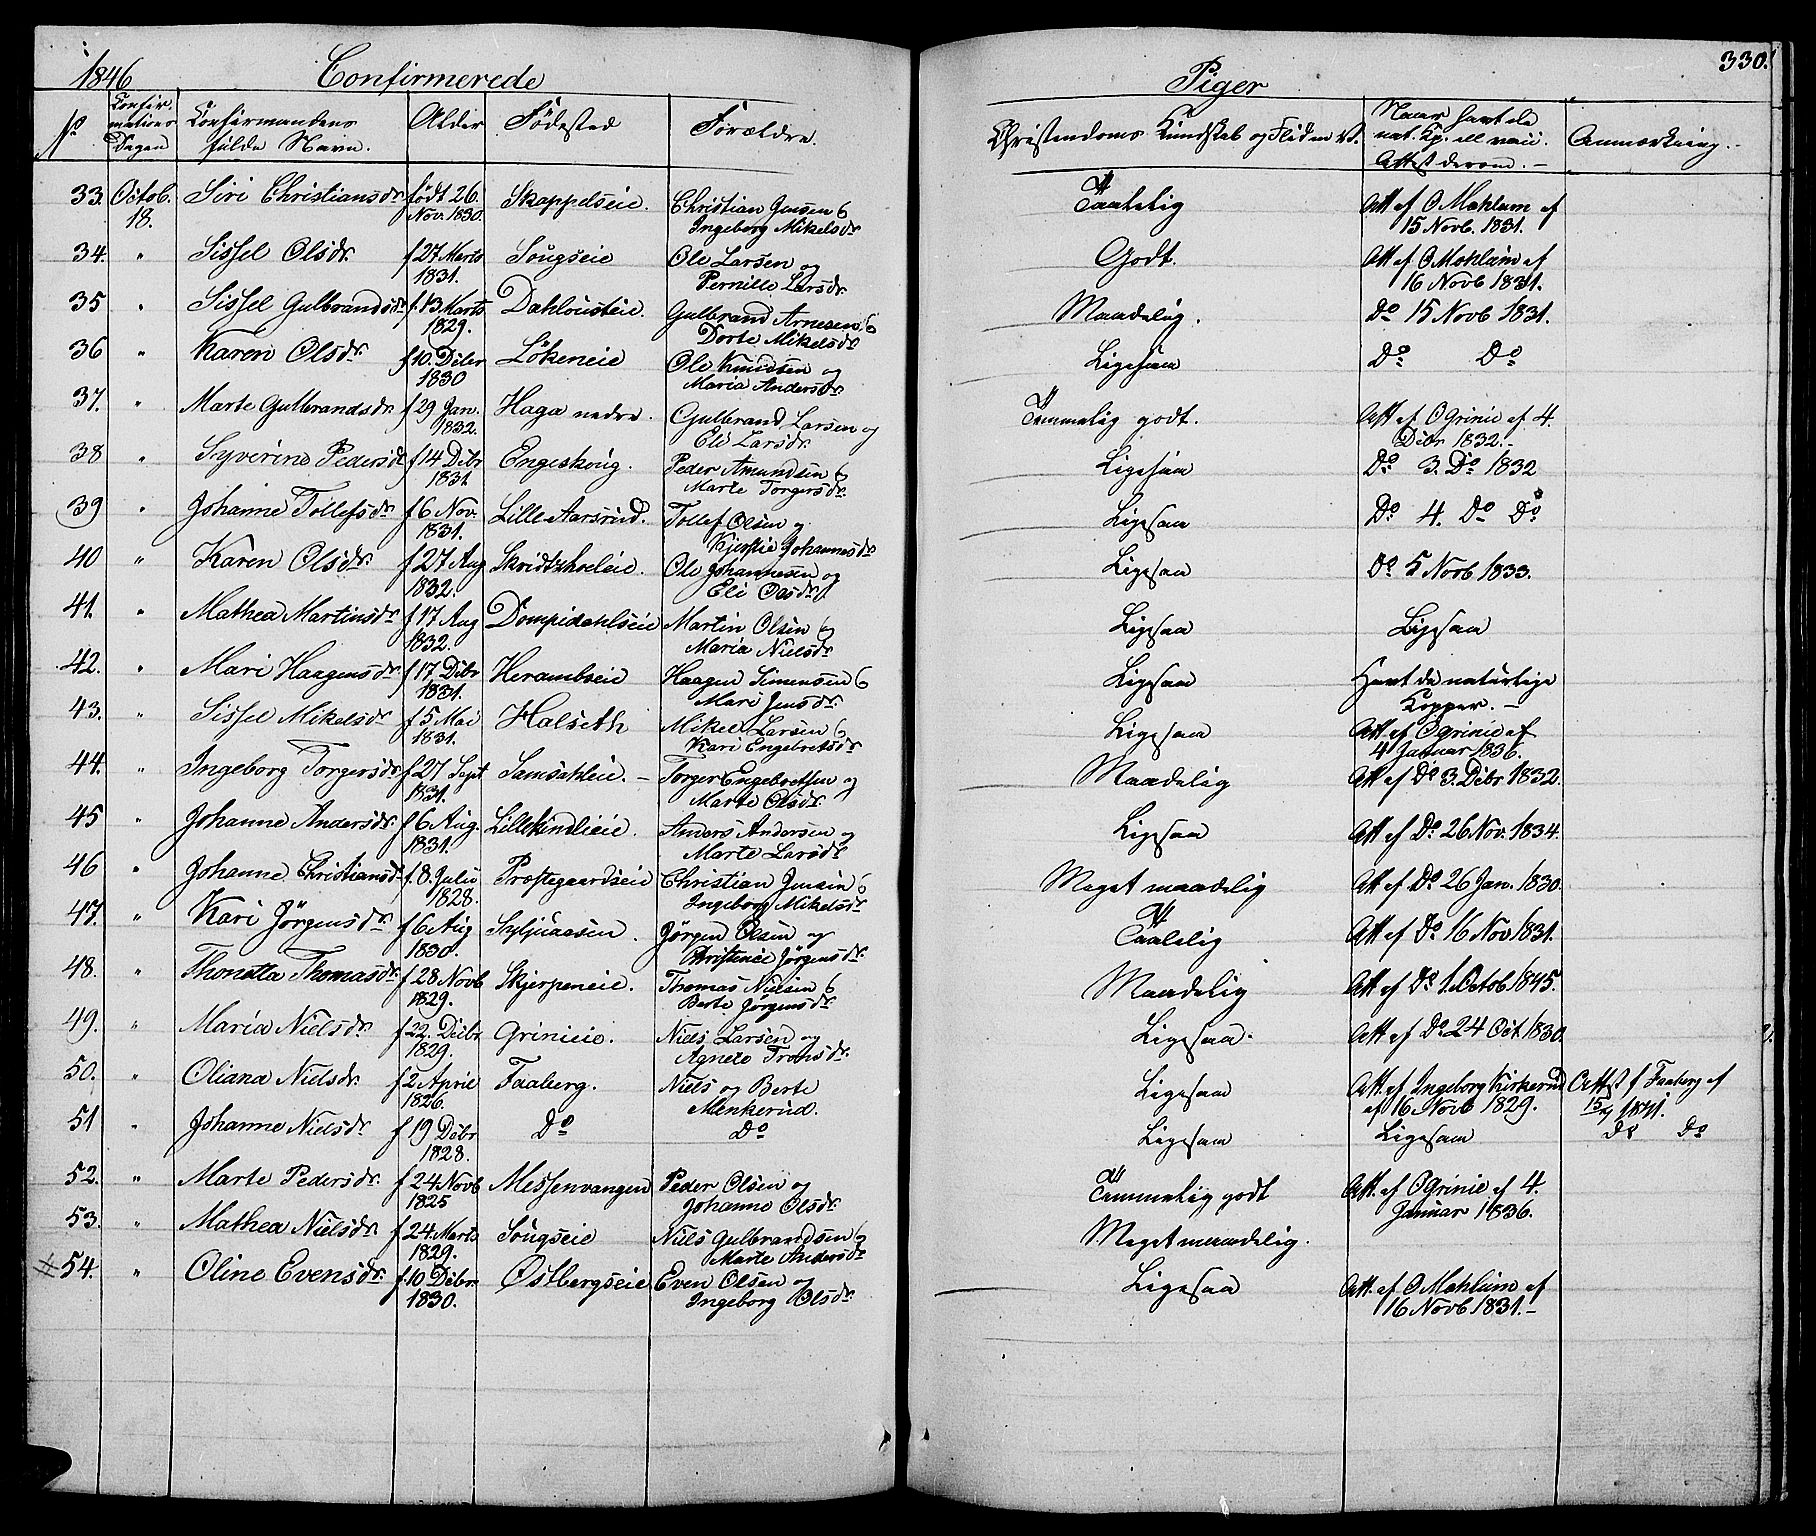 1846 Confirmerede
No Confirmations Dagen Confirmandens fulde Navn. Alder Födested Forældre.
33. Octob. 18. Siri Christiansdr. født 26. Nov. 1830. Skappelseie. Christian Jensen og Ingeborg Mikelsdr.
34. " Sissel Olsdr. f 27 Marts 1831. Sougseie Ole Larsen og Pernille Larsdr.
35 " Sissel Gulbrandsdr. f. 13 Marts 1829. Gulbrand Arnesen og Dorte Mikelsdr.
36 " Karen Olsdr. f 10. Debr 1830 Lökeneie Ole Knudsen og Maria Andersdr.
37. " Marte Gulbrandsdr. f 29 Jan. 1832. Haga nedre. Gulbrand Larsen og Eli Larsdr.
38 " Syverine Pedersdr. f 14 Debr 1831 Engeskoug. Peder Amundsen og Marte Torgersdr.
39 " Johanne Tollefsdr. f 6 Nov. 1831. Lille Aarsrud. Tollef Olsen og Kjerstie Johannesdr.
40 " Karen Olsdr. f 27 Aug 1832. Ole Johannesen og Eli Olsdr.
41. " Mathea Martinsdr. f 17 Aug 1832. Dompidahlseie Martin Olsen og Maria Nielsdr.
42. " Mari Haagensdr. f 17. Debr 1831. Herambseie Haagen Simensen og Mari Jensdr.
43. " Sissel Mikelsdr. f 5 Mai 1831. Halseth Mikel Larsen og Kari Engebretsdr.
44. " Ingeborg Torgersdr. f 27 Sept 1831. Torger Engebretsen og Marte Olsdr.
45 " Johanne Andersdr. f 6 Aug. 1831. Anders Andersen og Marte Larsdr.
46 " Johanne Christiansdr. f. 8. Julii 1828. Præstegaardseie Christian Jensen og Ingeborg Mikelsdr.
47. " Kari Jörgensdr. f 6 Aug 1830. Jörgen Olsen og Christine Jörgensdr.
48. " Thonetta Thomasdr. f 28 Novb 1829. Skjerpeneie. Thomas Nielsen og Berte Jörgensdr.
49. " Maria Nielsdr. f 22. Debr 1829. Grinieie. Niels Larsen og Agnete Tronsdr.
50. " Oliana Nielsdr. f 2 April 1826. Faaberg. Niels og Berte Menkerud.
51 " Johanne Nielsdr. f 19 Debr 1828. Do Do
52. " Marte Pedersdr. f 24 Novb 1825 Messenvangen Peder Olsen og Johanne Olsdr.
53. " Mathea Nielsdr. f 24. Marts 1829. Sougseie Niels Gulbrandsen og Marte Andersdr.
54. " Oline Evensdr. f 10 Debr. 1830. Östbergseie Even Olsen og Ingeborg Olsdr.
Piger 330.
Christendoms Kundskab og Flid m. v. Naar havt de nat. Kp. ell. vacc. Attest derom. – Anmærkning. –
Taalelig Att. af O Mæhlum af 15 Novb. 1831.
Godt. Att. af O Mæhlum af 16 Novb 1831.
Maadelig. Do 15 Novb 1831.
Ligesaa Do Do
Temmelig godt. Att. af O Grinie af 4. Debr 1832. –
Ligesaa Do 3. Do 1832
Ligesaa Do 4. Do Do
Ligesaa Do 5 Novb 1833.
Ligesaa Ligesaa
Ligesaa Havt de naturlige Kopper. –
Ligesaa Att. af O Grinie af 4 Januar 1836.
Maadelig Att af Do 3. Debr 1832.
Ligesaa Att af Do 26 Nov. 1834.
Meget maadelig Att af Do 26 Jan. 1830.
Taalelig Att af Do 16 Nov 1831.
Maadelig Att af Do 1. Octob 1845.
Ligesaa. Att af Do 24 Oct. 1830.
Ligesaa Att. af Ingeborg Kirkerud af 16 Novb 1829. Attest f Faaberg af
Ligesaa Ligesaa Do Do
Temmelig godt Att. af O Grinie af 4. Januar 1836.
Meget maadelig.
Ligesaa Att. af O Mæhlum af 16 Novb 1831. –